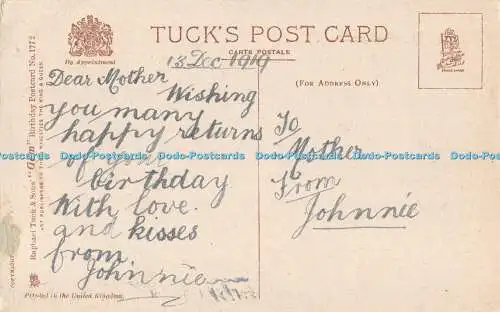 TUCK'S POST CARD
CARTE POSTALE
By Appointment
(FOR ADDRESS ONLY)
13 Dec 1919
Dear Mother
Wishing
you many
happy returns
of
birthday
With love
and kisses
from
Johnnie
To
Mother
From
Johnnie
Dodo-Postcards Dodo-Postcards Dodo-Postcards Dodo-Postcards Dodo-Postcards
Raphael Tuck & Sons' "Gem" Birthday Postcard No. 1772
ART PUBLISHERS TO THEIR MAJESTIES THE KING & QUEEN.
Printed in the United Kingdom.